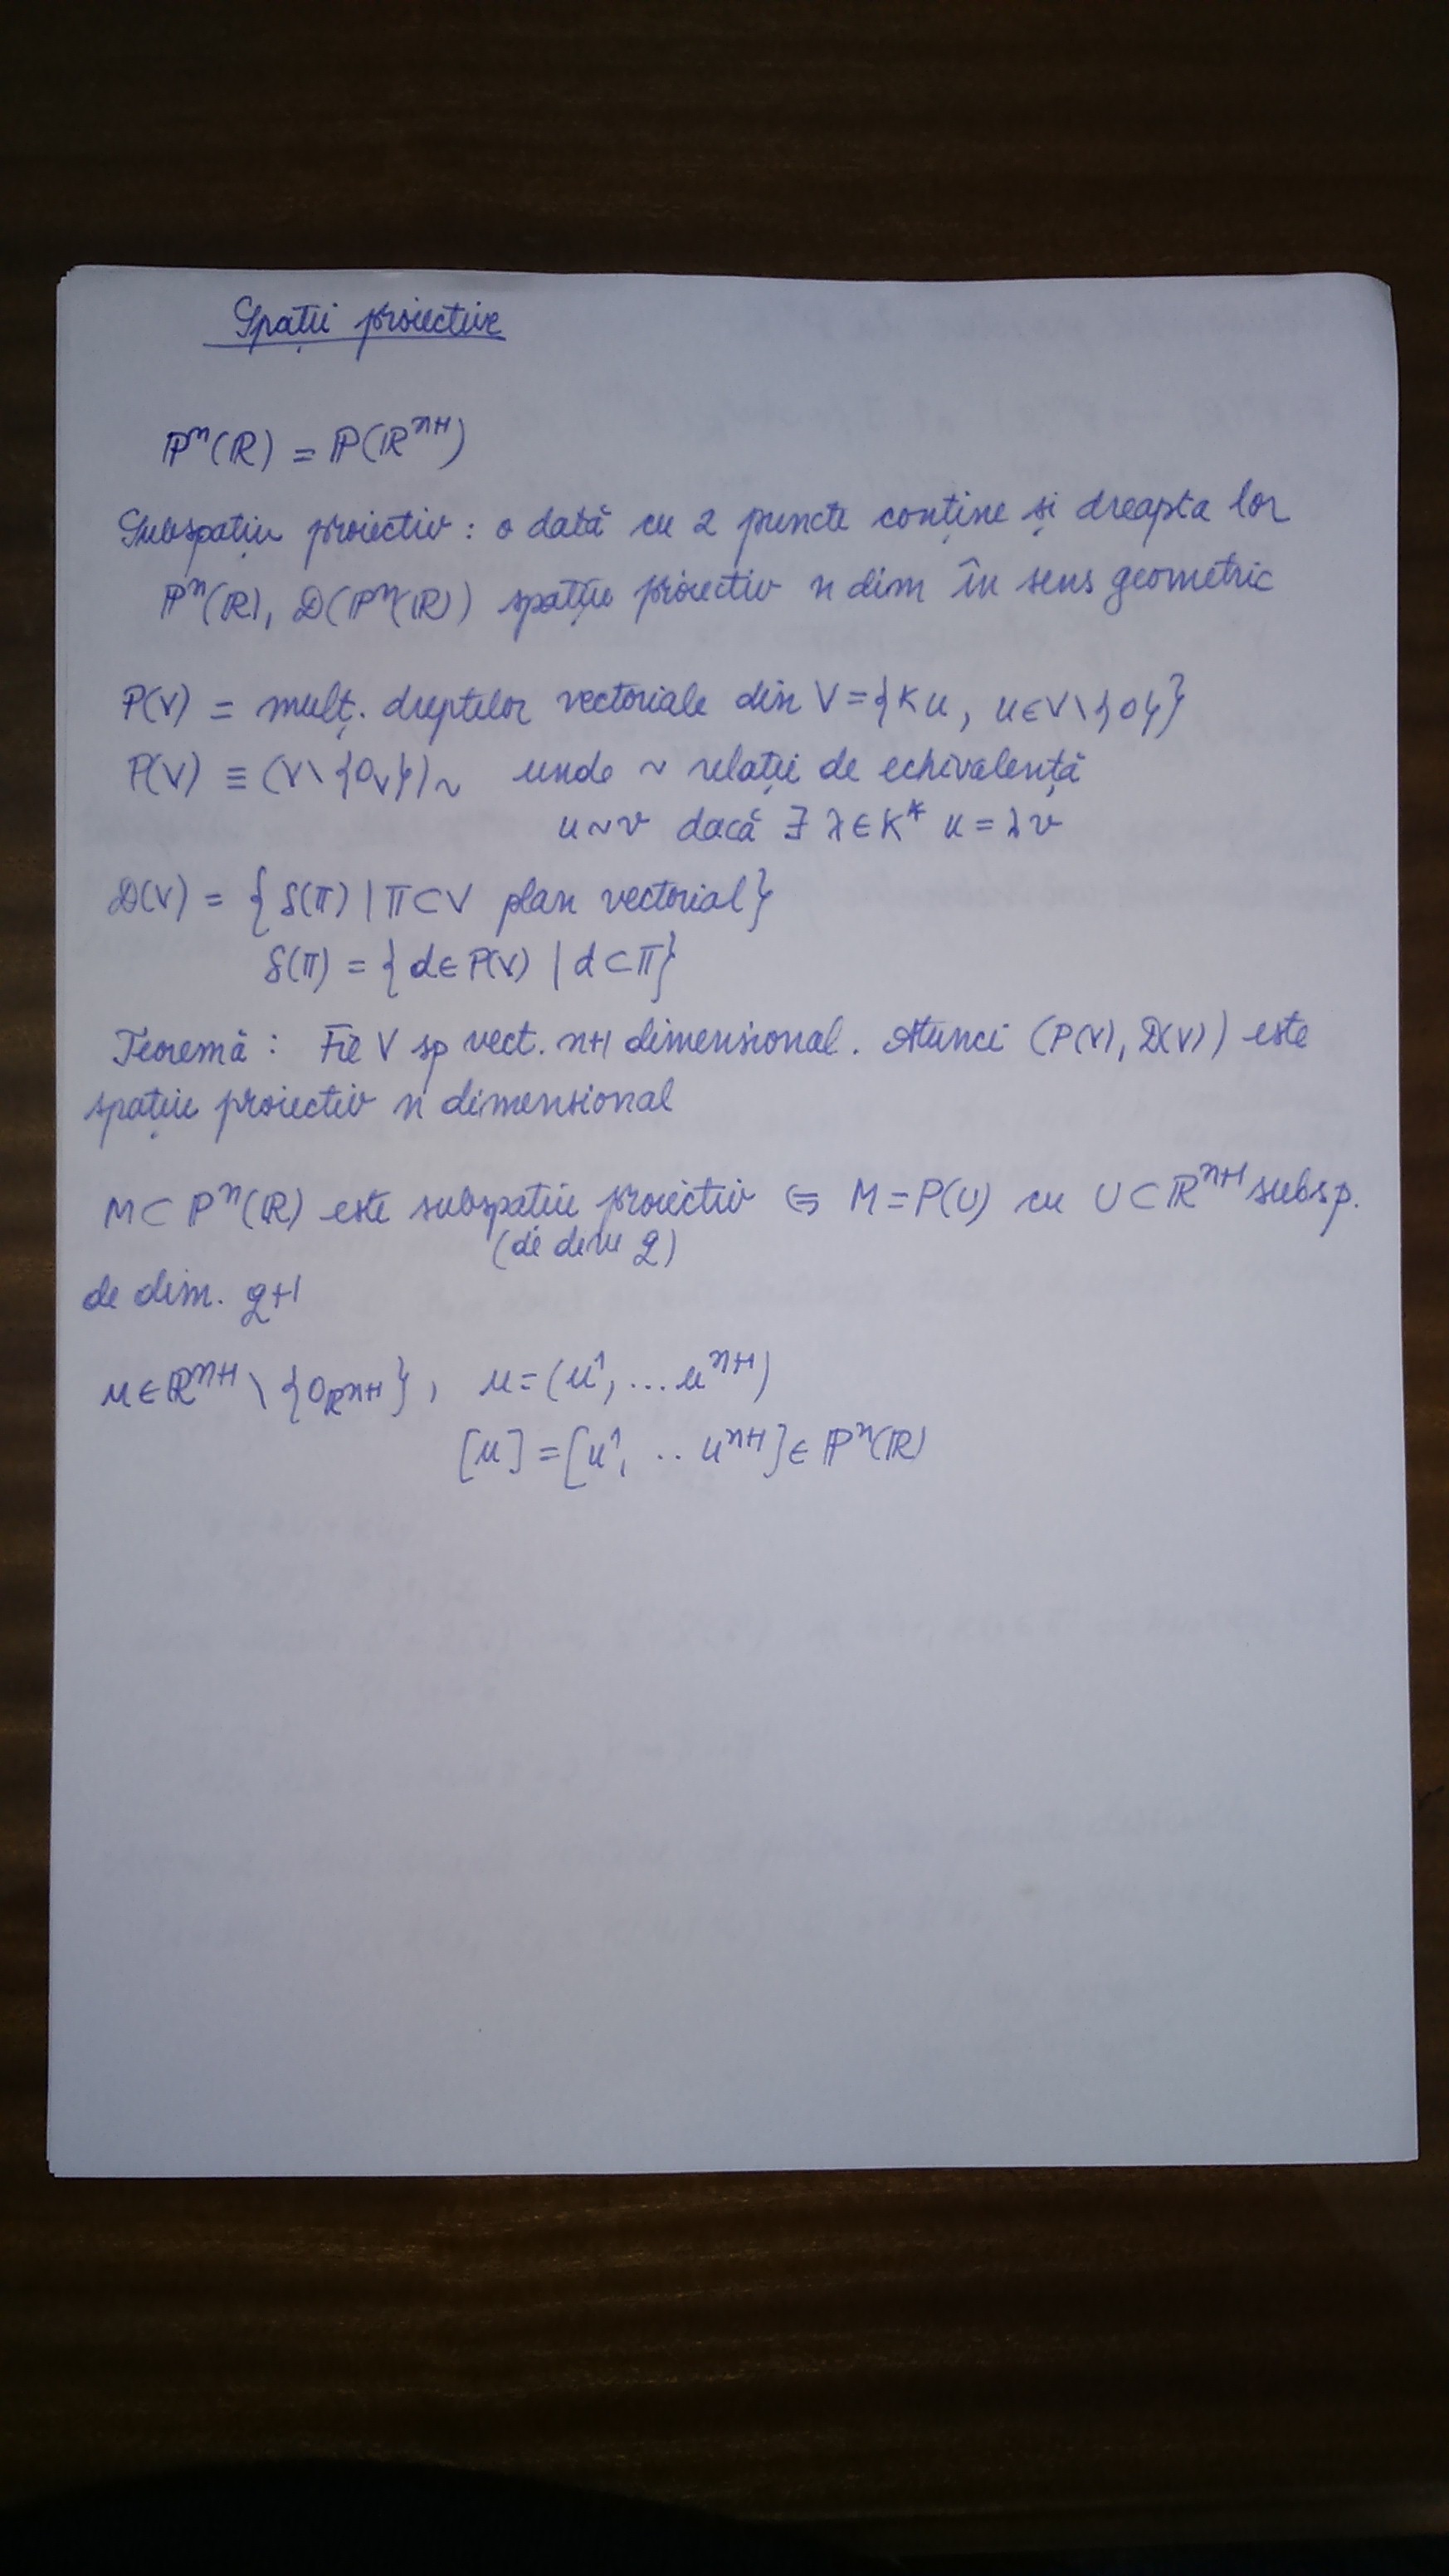 Spații proiective
ℙⁿ(ℝ) = ℙ(ℝⁿ⁺¹)
Subspațiu proiectiv : o dată cu 2 puncte conține și dreapta lor
ℙⁿ(ℝ), 𝒟(ℙⁿ(ℝ)) spațiu proiectiv n dim în sens geometric
P(V) = mulț. dreptelor vectoriale din V = {Ku, u∈V\{0}}
P(V) ≡ (V\{0ᵥ})∼ unde ∼ relații de echivalență
u∼v dacă ∃ λ∈K* u = λv
𝒟(V) = {δ(π) | π⊂V plan vectorial}
δ(π) = {d∈P(V) | d⊂π}
Teoremă : Fie V sp vect. n+1 dimensional. Atunci (P(V), 𝒟(V)) este
spațiu proiectiv n dimensional
M⊂ Pⁿ(ℝ) este subspatiu proiectiv ⇔ M = P(U) cu U⊂ℝⁿ⁺¹ subsp.
(de dim q)
de dim. q+1
u∈ℝⁿ⁺¹ \ {0_ℝⁿ⁺¹}, u=(u¹, ... uⁿ⁺¹)
[u] = [u¹, .. uⁿ⁺¹]∈ ℙⁿ(ℝ)